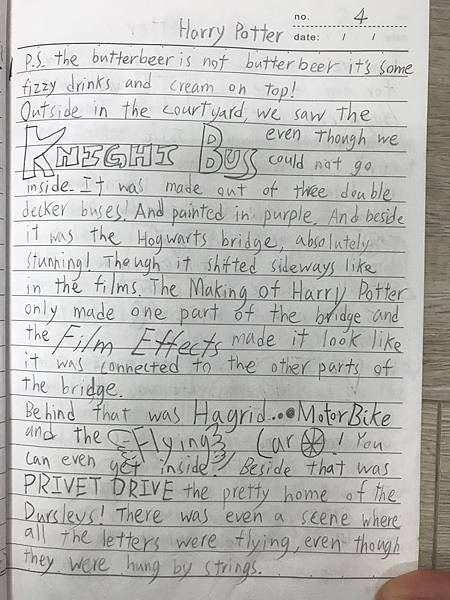 Harry Potter
no. 4
date: / /
P.S. the butterbeer is not butter beer it's some
fizzy drinks and cream on top!
Outside in the courtyard, we saw the
KNIGHT BUS even though we
could not go
inside. It was made out of three double
decker buses! And painted in purple. And beside
it was the Hogwarts bridge, absolutely
stunning! Though it shifted sideways like
in the films. The Making of Harry Potter
only made one part of the bridge and
the Film Effects made it look like
it was connected to the other parts of
the bridge.
Behind that was Hagrid... MotorBike
and the Flying Car! You
can even get inside! Beside that was
PRIVET DRIVE the pretty home of the
Dursleys! There was even a scene where
all the letters were flying, even though
they were hung by strings.